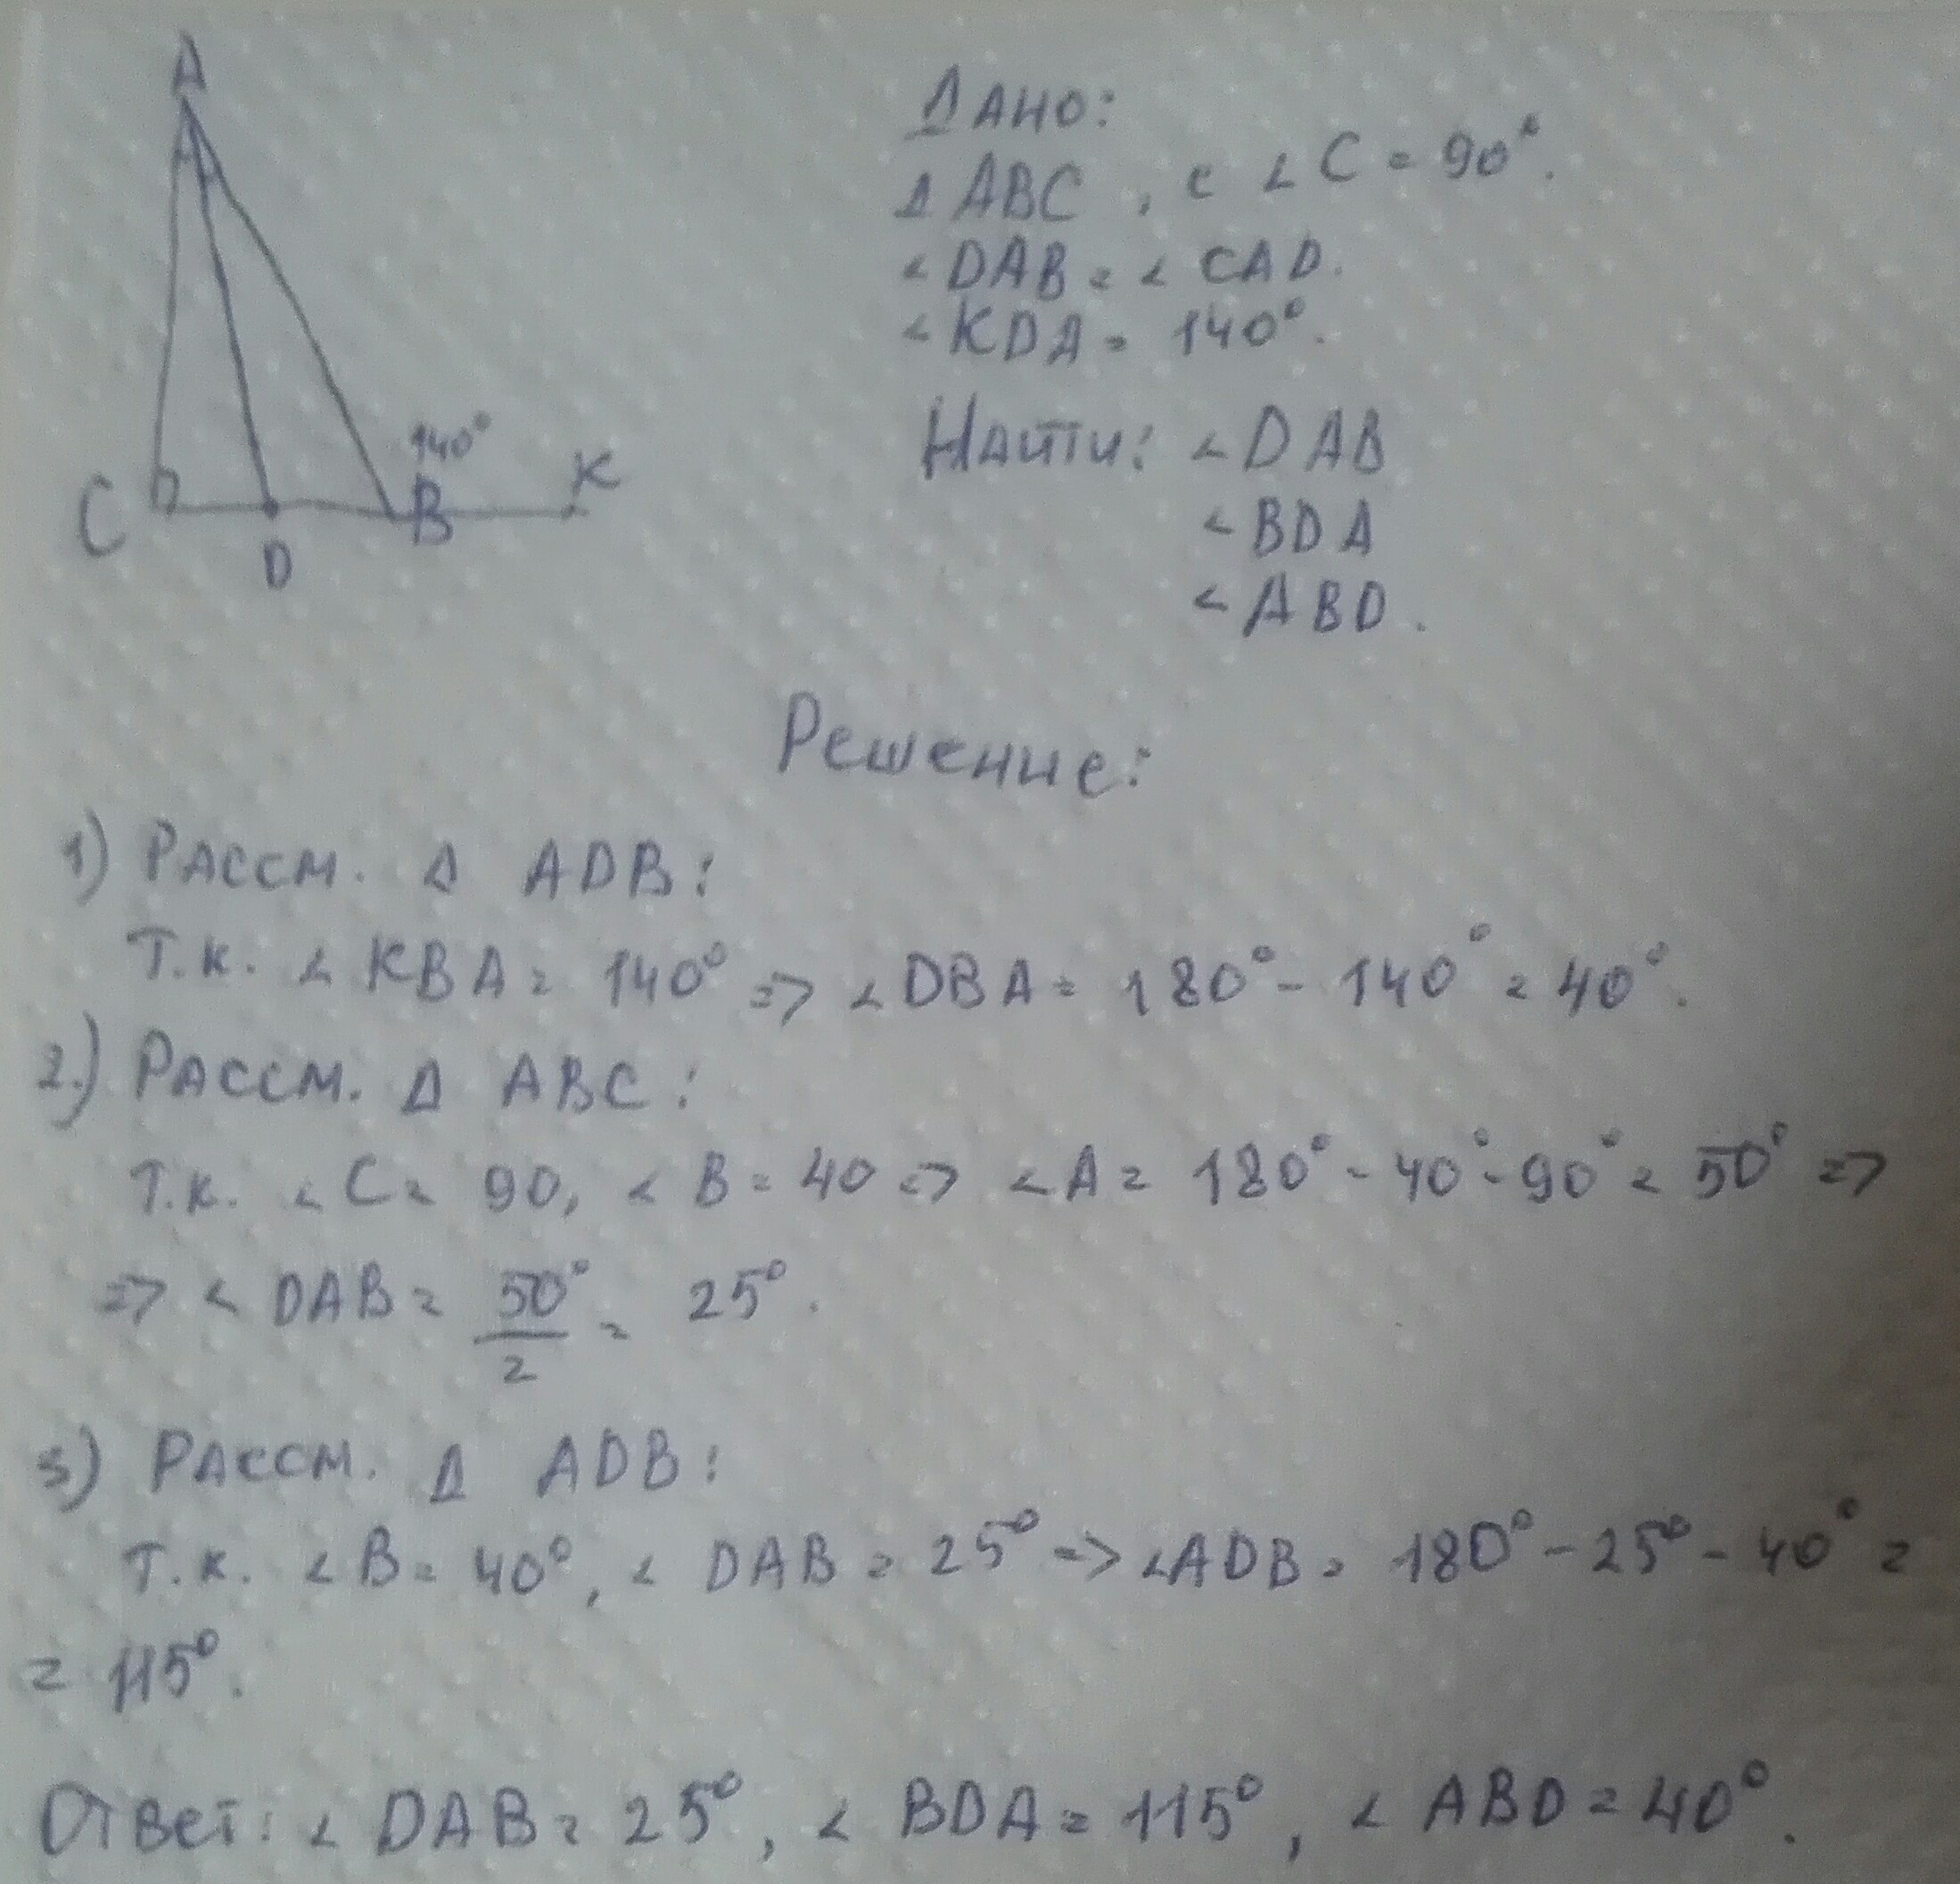 A
140°
C
D
B
K
Дано:
Δ ABC, с ∠C = 90°.
∠DAB = ∠CAD.
∠KDA = 140°.
Найти: ∠DAB
∠BDA
∠ABD.
Решение:
1) Рассм. Δ ADB:
Т.к. ∠KBA = 140° => ∠DBA = 180° - 140° = 40°.
2.) Рассм. Δ ABC:
Т.к. ∠C = 90, ∠B = 40 => ∠A = 180° - 40° - 90° = 50° =>
=> ∠DAB = 50°/2 = 25°.
3) Рассм. Δ ADB:
Т.к. ∠B = 40°, ∠DAB = 25° => ∠ADB = 180° - 25° - 40° =
= 115°.
Ответ: ∠DAB = 25°, ∠BDA = 115°, ∠ABD = 40°.